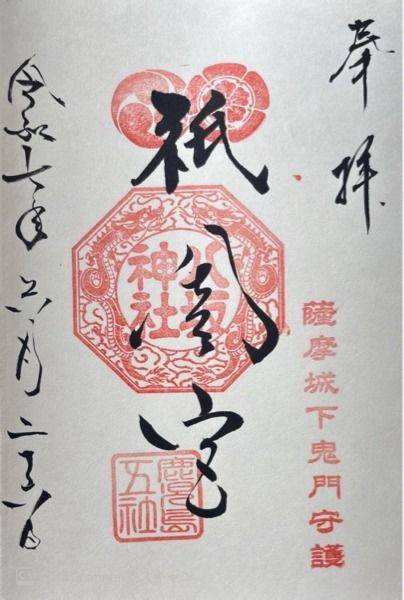 奉拝
薩摩城下鬼門守護
祇園宮
八坂
神社
鹿児島
五社
令和 年六月二 日